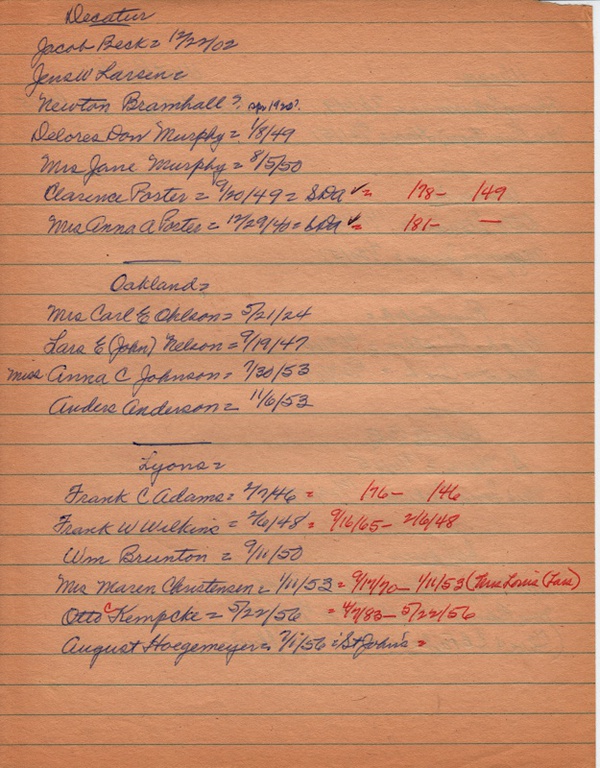 Decatur
Jacob Beck = 12/22/02
Jens W Larsen =
Newton Bramhall? Apr 1920?
Delores Don Murphy = 1/8/49
Mrs Jane Murphy = 8/5/50
Clarence Porter = 9/20/49 = SDA ✓ = 178 - 149
Mrs Anna A Porter = 12/29/40 = SDA ✓ = 181 - —
Oakland =
Mrs Carl E Ohlson = 5/21/24
Lars E (John) Nelson = 9/19/47
Miss Anna C Johnson = 7/30/53
Anders Anderson = 11/6/53
Lyons =
Frank C Adams = 2/7/46 = 176 - 146
Frank W Wilkins = 2/6/48 = 9/16/65 - 2/6/48
Wm Brunton = 9/11/50
Mrs Maren Christensen = 1/11/53 = 9/17/70 - 1/11/53 (Mrs Louis (Lars)
Otto C Kempcke = 5/22/56 = 4/7/83 - 5/22/56
August Hoegemeyer = 7/1/56 = St John's =